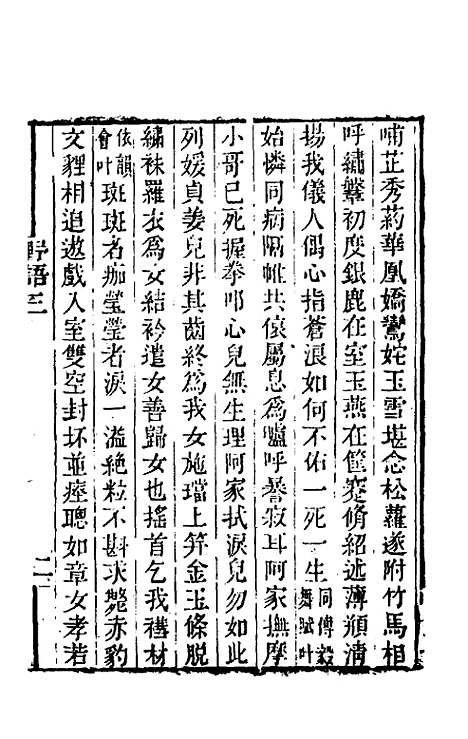 喃芷秀葯華凰嬌鸞姹玉雪堪念松蘿遂附竹馬相
呼繡鞶初度銀鹿在室玉燕在筐蹇脩紹述薄頮淸
揚我儀人偶心指蒼浪如何不佑一死一生同傅毅舞賦叶
始憐同病隔帷共偯屬息爲嚧呼謈寂耳阿家撫摩
小哥已死握拳叩心兒無生理阿家拭淚兒勿如此
列媛貞姜兒非其齒終爲我女施璫上笄金玉條脫
繡袜羅衣爲女結衿遣女善歸女也搖首乞我禭材
依韻會叶斑斑者痂瑩瑩者淚一溢絶粒不斟求斃赤豹
文貍相追遨戲入室雙空封坏並瘞聰如章女孝若
野語三
二